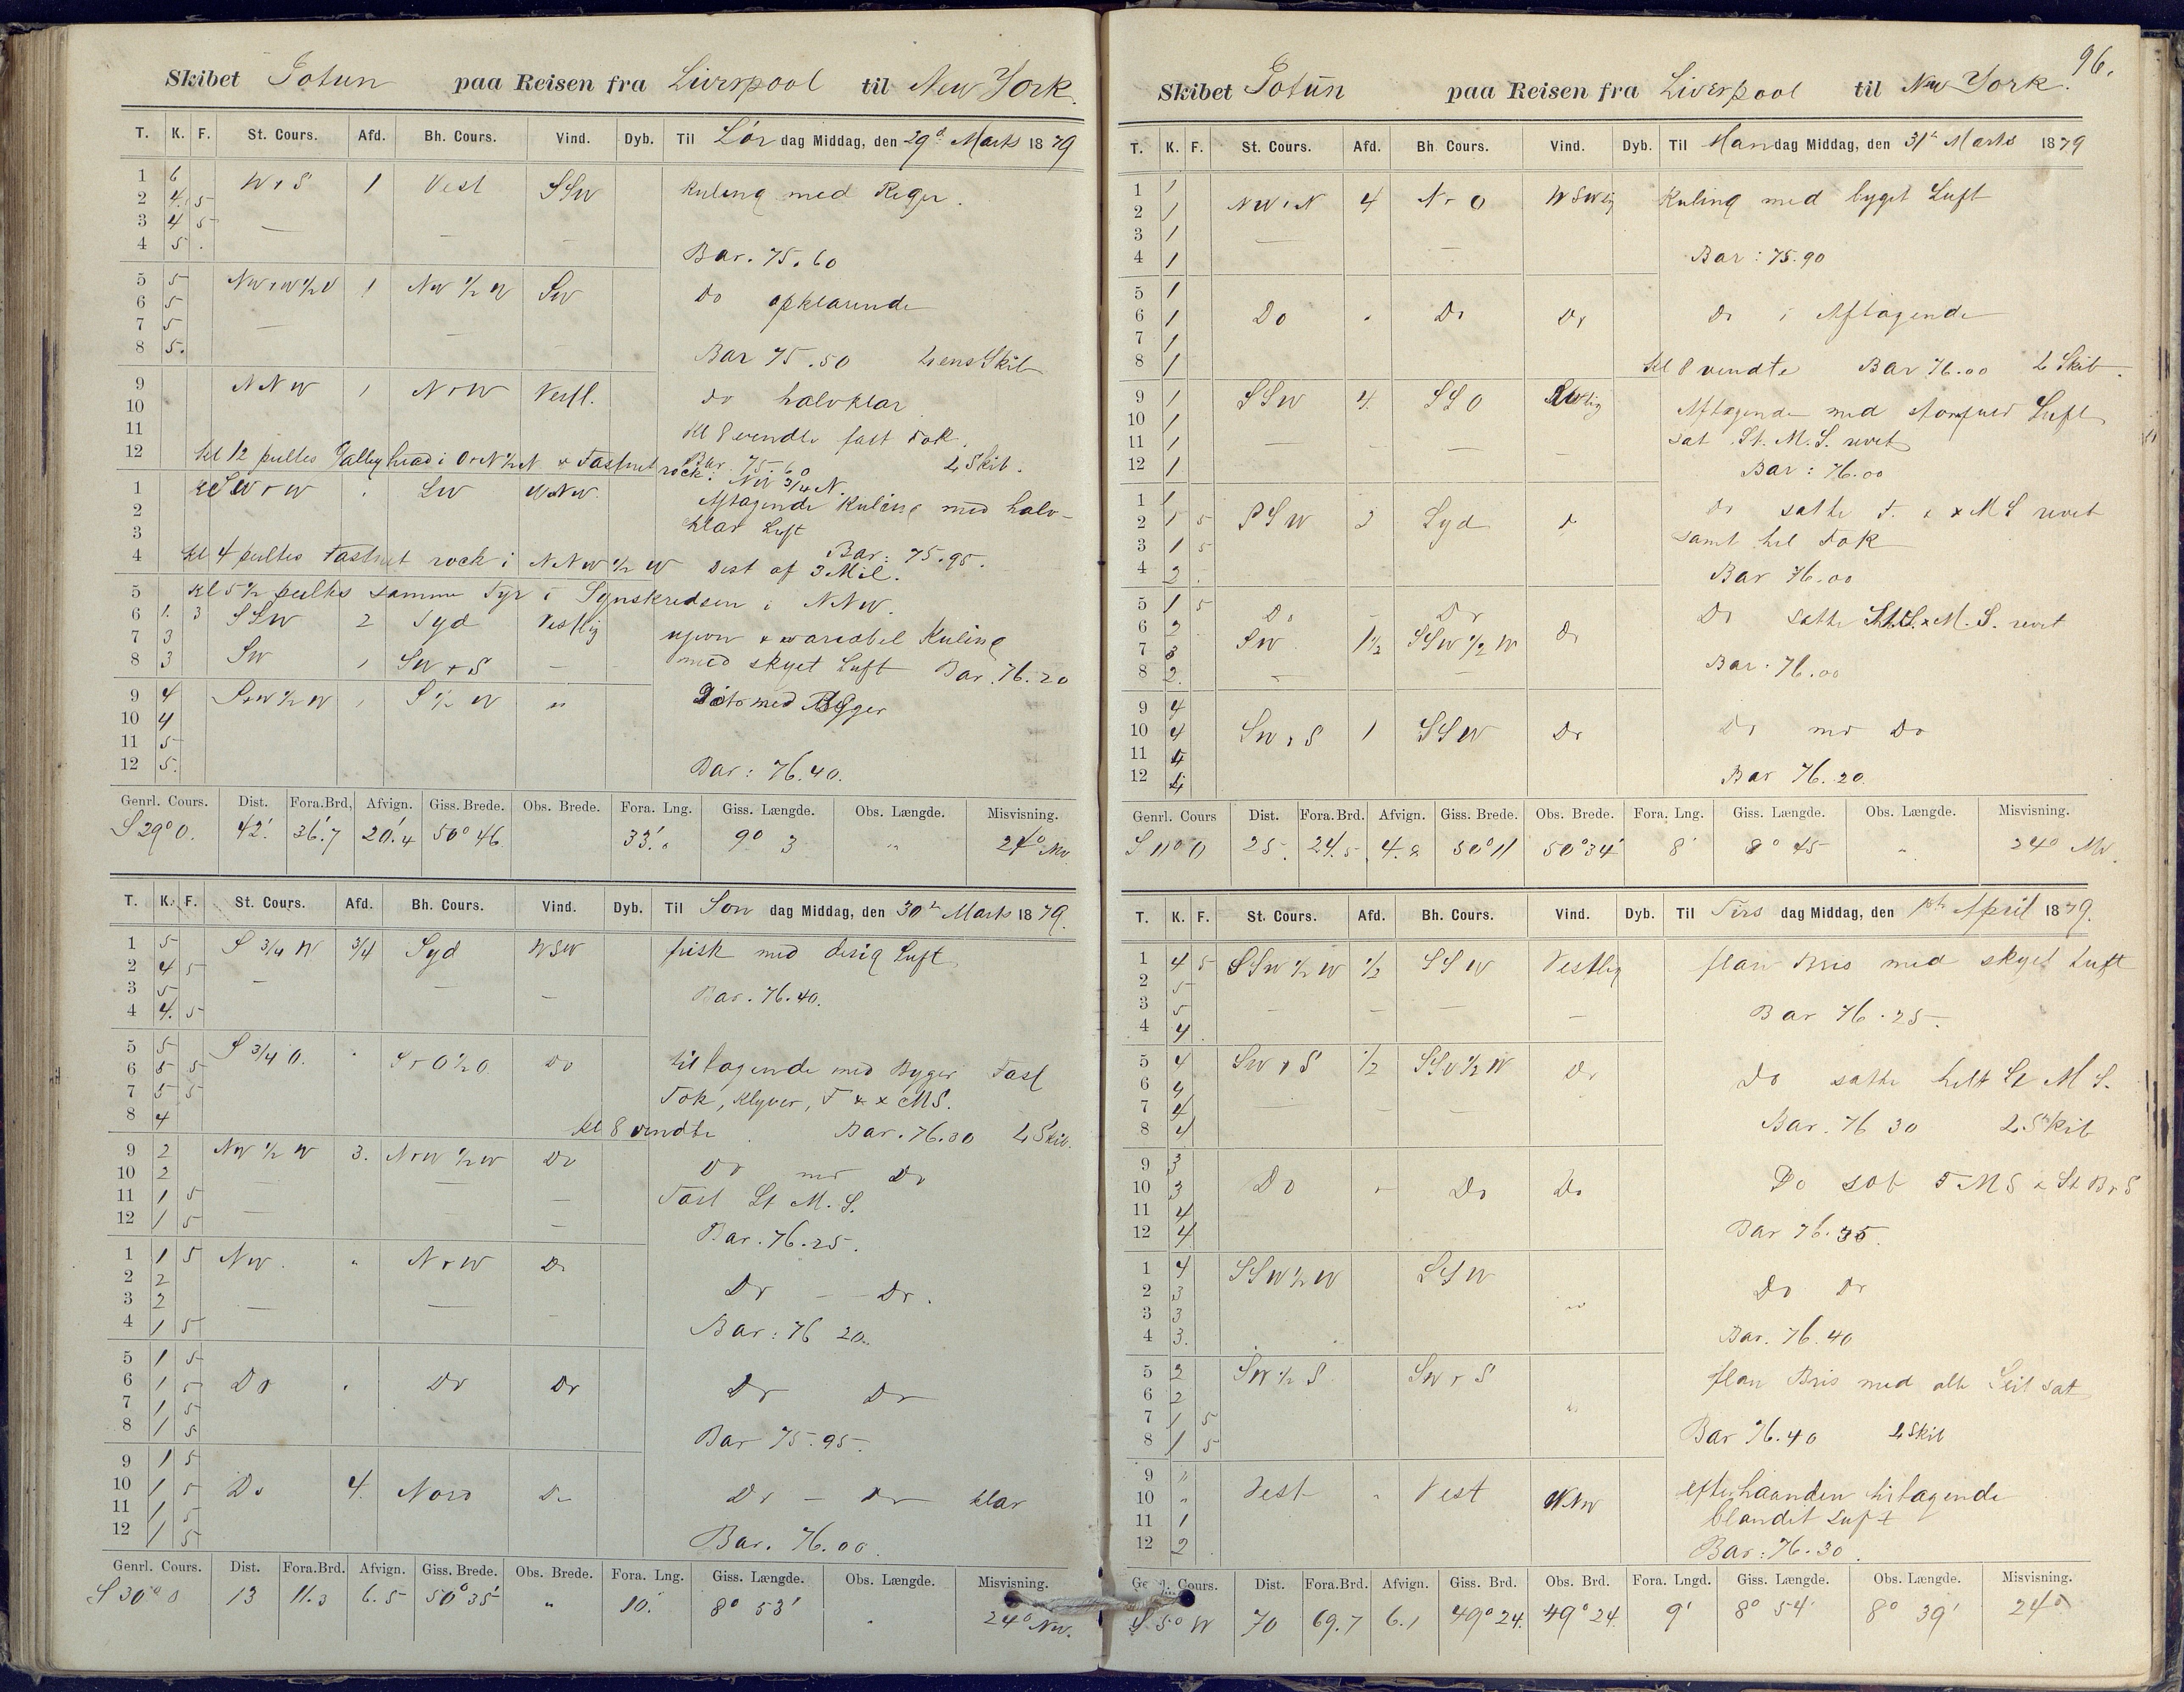 Skibet Jotun paa Reisen fra Liverpool til New York.
T. K. F. St. Cours. Afd. Bh. Cours. Vind. Dyb. Til Lør dag Middag, den 29d Marts 1879
1 6 W r S 1 Vest SSW Kuling med Regn.
2 4. 5
3 4 5 — — —
4 5 . Bar. 75.60
5 5 NW r W 1/2 W 1 NW 1/2 W SW
6 5 Do opklarende
7 5 — — —
8 5. Bar 75.50 Lens Skib
9 NNW 1 N r W Vestl. Do halvklar
10
11 Kl 8 vendte fast Fok.
12 Kl 12 peiltes Galley head i O r N 1/2 N & Fastnet rock. NW 3/4 N. Bar. 75.60 L Skib.
1 SW r W . SW WNW. Aftagende Kuling med halv-
2 klar Luft
3
4 Kl 4 peiltes Fastnet rock i NNW 1/2 W Dist af 3 Mil. Bar: 75.95.
5 Kl 5 1/2 peiltes samme Fyr i Synskredsen i NNW.
6 1. 3 SSW 2 Syd Vestlig ujevn & variabel Kuling
7 3
8 3 SW 1 SW r S — med skyet Luft Bar. 76.20
9 4 S r W 1/2 W 1 S 1/2 W " Dito med Byger
10 4
11 5
12 5. Bar: 76.40.
Genrl. Cours. Dist. Fora.Brd. Afvign. Giss. Brede. Obs. Brede. Fora. Lng. Giss. Længde. Obs. Længde. Misvisning.
S 29° O. 42.' 36.'7 20.'4 50° 46 33.' 9° 3 " 24° NW.
T. K. F. St. Cours. Afd. Bh. Cours. Vind. Dyb. Til Søn dag Middag, den 30te Marts 1879.
1 5 S 3/4 W 3/4 Syd WSW frisk med disig Luft
2 4 5
3 5 — — — Bar. 76.40.
4 4. 5
5 5 S 3/4 O. " S r O 1/2 O Do tiltagende med Byger Fast
6 5 5
7 5 5 Fok, Klyver, F & x MS.
8 4 Kl 8 vendte. Bar. 76.30 L Skib.
9 2 NW 1/2 W 3. N r W 1/2 W Do Do md Do
10 2 — — —
11 1 5 Fast St M. S.
12 1 5 — — — Bar. 76.25.
1 1 5 NW. " N r W Do
2 2 Do — Do.
3 2 — — —
4 1 5 Bar: 76 20.
5 1 5
6 1 5 Do " Do Do Do Do
7 1 5
8 1 5 Bar 75.95.
9 1 5
10 1 5 Do 4. Nord Do Do — Do klar
11 1 5
12 1 5 Bar. 76.00.
Genrl. Cours. Dist. Fora.Brd. Afvign. Giss. Brede. Obs. Brede. Fora. Lng. Giss. Længde. Obs. Længde. Misvisning.
S 30° O 13 11.3 6.5 50° 35' " 10. 8° 53' . 24° NW.
96.
Skibet Jotun paa Reisen fra Liverpool til New York.
T. K. F. St. Cours. Afd. Bh. Cours. Vind. Dyb. Til Mandag Middag, den 31te Marts 1879
1 1 NW r N 4 N r O WSWlig Kuling med byget Luft
2 1
3 1 — —
4 1 Bar: 75.90
5 1
6 1 Do " Do Do Do i Aftagende
7 1
8 1 Kl 8 vendte Bar 76.00 L Skib.
9 1 SSW 4. SSO SWlig Aftagende med stormfuld Luft
10 1
11 1 — — — sat St. M. S. revet
12 1 Bar: 76.00
1 1 Do satte F. & x MS revet
2 1 5 SSW 2 Syd Do
3 1 5 samt hel Fok
4 2. Bar 76.00
5 1 5 Do — Do Do satte St. S. x M. S. revet
6 2
7 3 SW 1 1/2 SSW 1/2 W Do
8 2. — — Bar. 76.00
9 4
10 4 SW r S 1 SSW Do Do md Do
11 4
12 4 Bar 76.20
Genrl. Cours Dist. Fora.Brd. Afvign. Giss. Brede. Obs. Brede. Fora. Lng. Giss. Længde. Obs. Længde. Misvisning.
S 11° O 25. 24.5 4.8 50° 11 50° 34' 8' 8° 45 " 24° NW.
T. K. F. St. Cours. Afd. Bh. Cours. Vind. Dyb. Til Tirs dag Middag, den 1ste April 1879.
1 4 5 SSW 1/2 W 1/2 SSW Vestlig flau Bris med skyet Luft
2 5
3 5 — — — — Bar 76.25.
4 4
5 4 SW r S 1/2 SSW 1/2 W Do Do satte helt St M S.
6 4
7 4 — — —
8 4 Bar. 76 30 L Skib
9 3
10 3 Do " Do Do Do sat F M S & St Br S
11 4
12 4 Bar 76.35.
1 4 SSW 1/2 W SSW
2 3 " Do Do
3 3
4 3. Bar. 76.40
5 2 SW 1/2 S SW r S flau Bris med alle Seil sat
6 2
7 1 5 "
8 1 5 Bar 76.40 L Skib
9 " Vest " Vest WNW efterhaanden tiltagende
10 "
11 1 blandet Luft
12 2 Bar: 76.30.
Genrl. Cours. Dist. Fora.Brd. Afvign. Giss. Brd. Obs. Brd. Fora. Lngd. Giss. Længde. Obs. Længde. Misvisning.
S 5° W 70 69.7 6.1 49° 24. 49° 24. 9' 8° 54' 8° 39' 24°